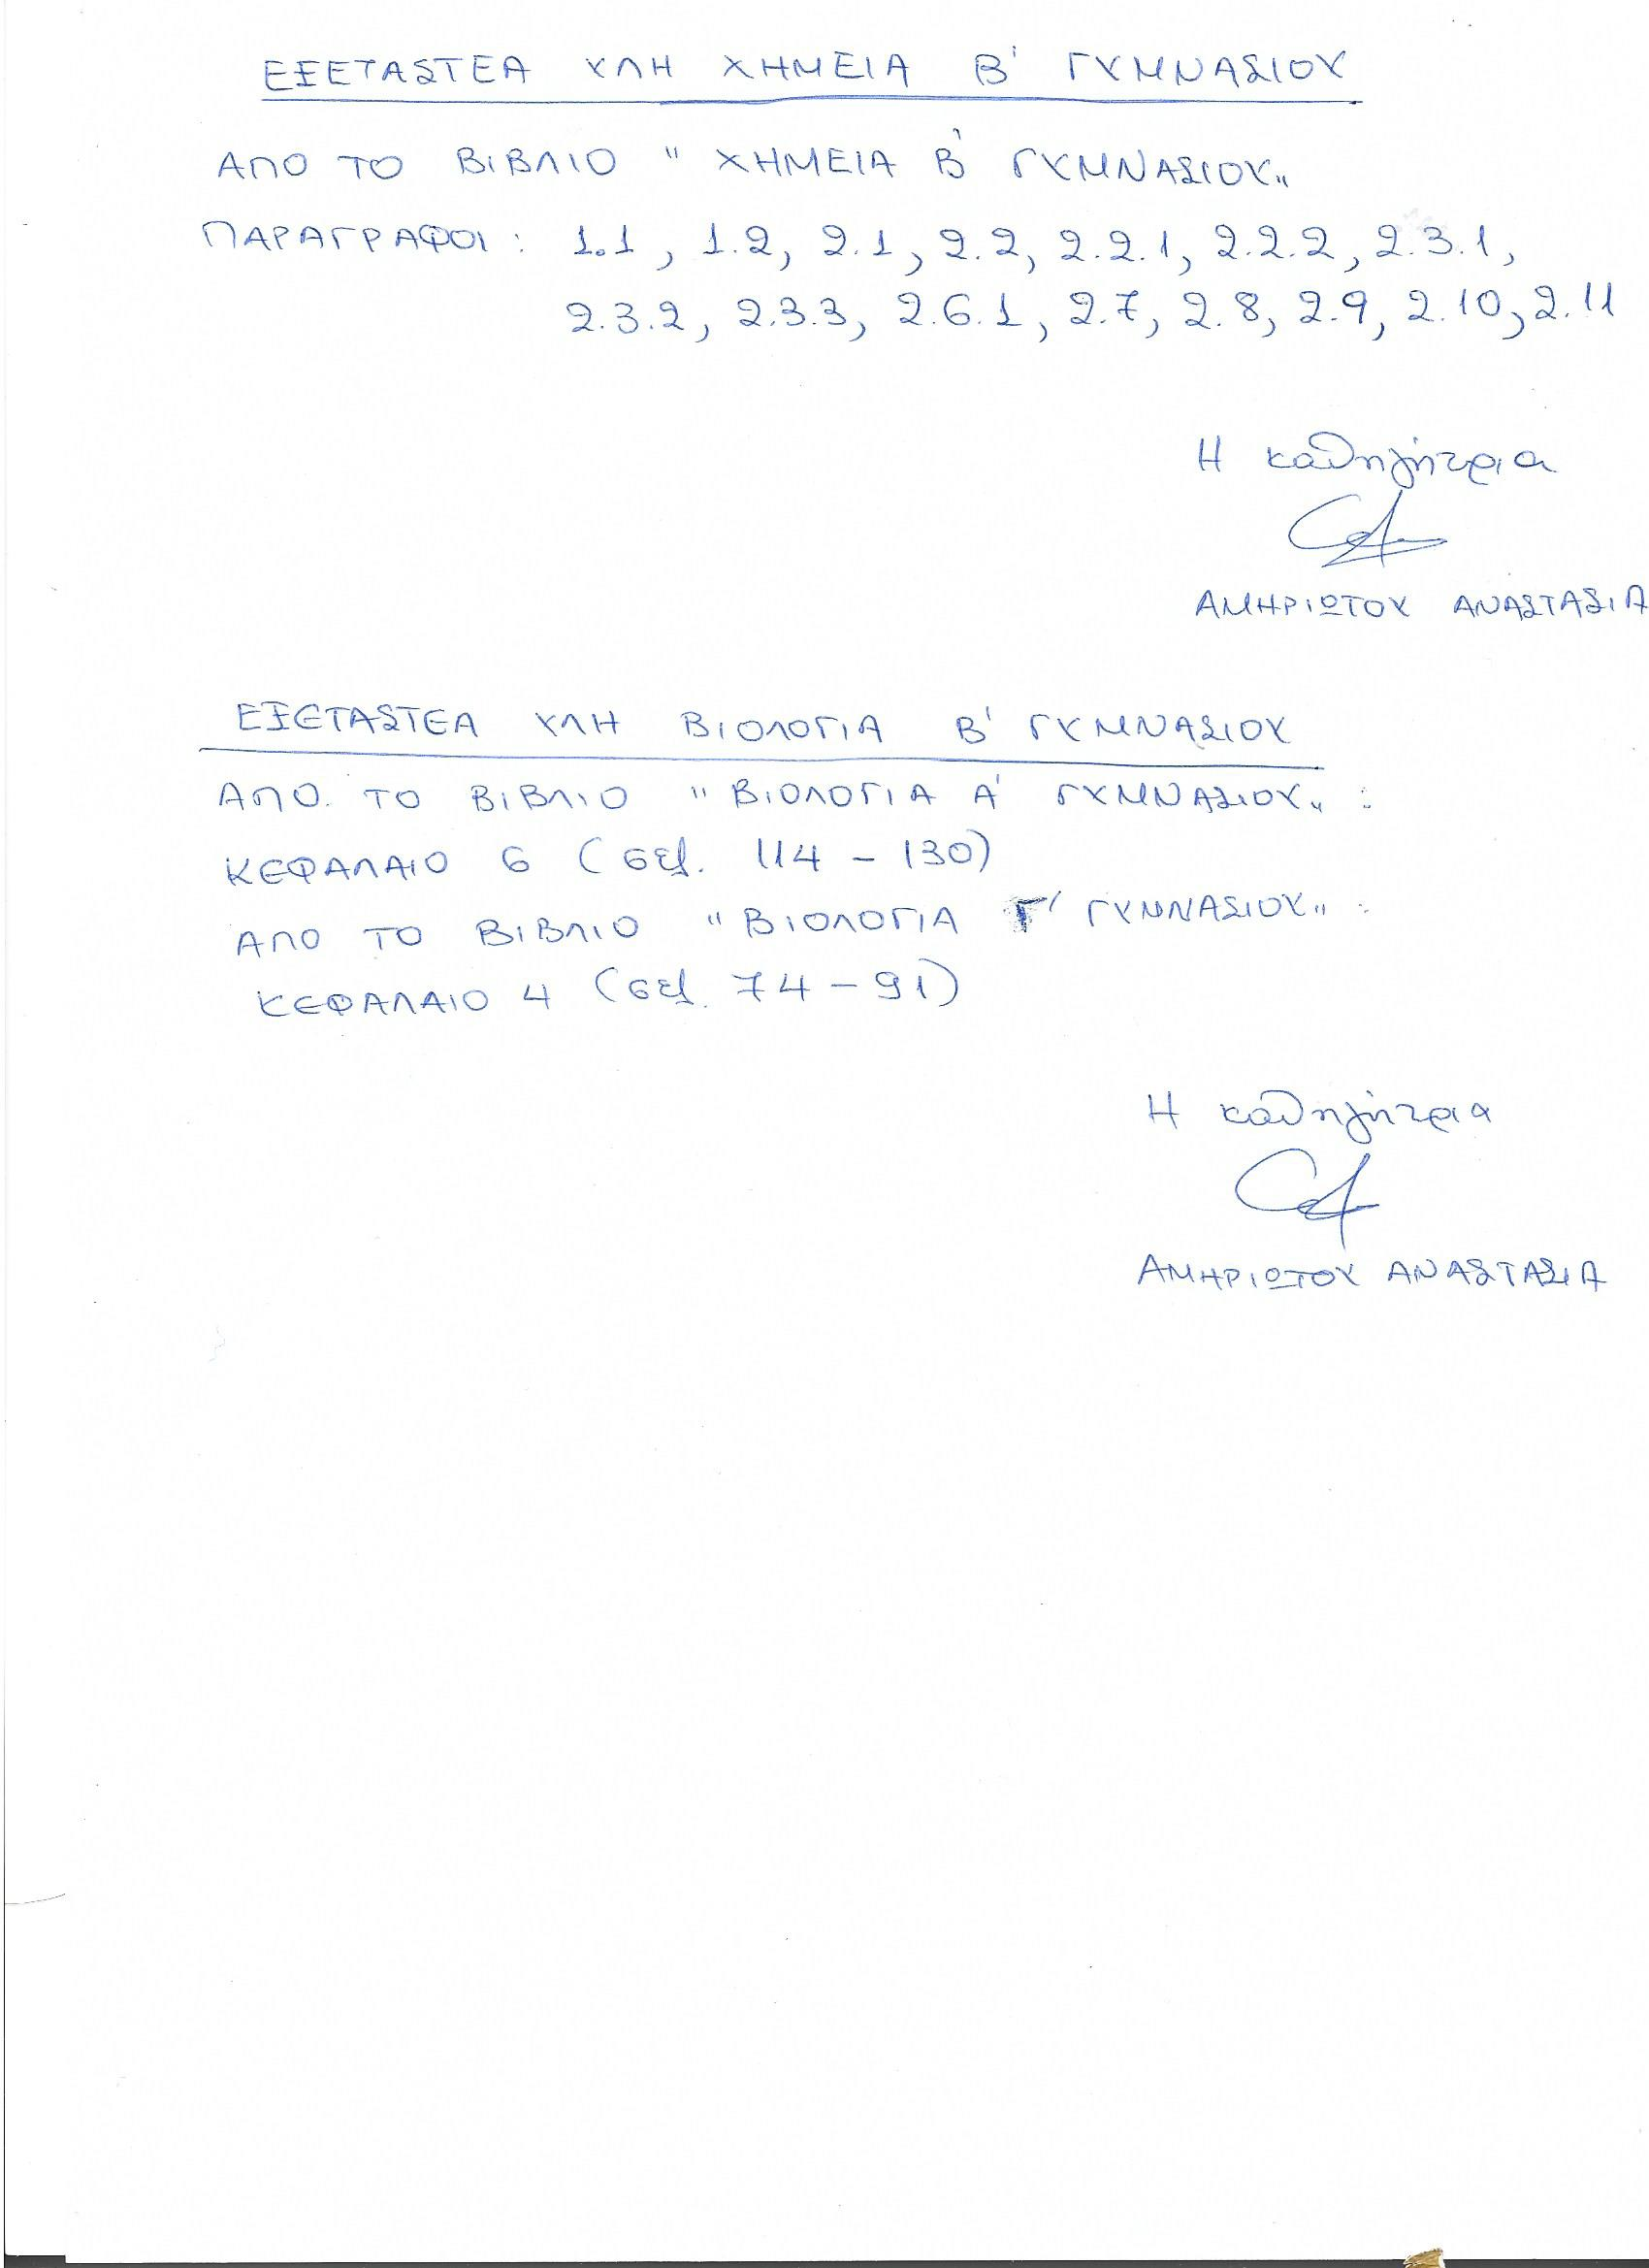 ΕΞΕΤΑΣΤΕΑ ΥΛΗ ΧΗΜΕΙΑ Β' ΓΥΜΝΑΣΙΟΥ
ΑΠΟ ΤΟ ΒΙΒΛΙΟ " ΧΗΜΕΙΑ Β' ΓΥΜΝΑΣΙΟΥ„
ΠΑΡΑΓΡΑΦΟΙ : 1.1 , 1.2, 2.1, 2.2, 2.2.1, 2.2.2, 2.3.1,
2.3.2, 2.3.3, 2.6.1, 2.7, 2.8, 2.9, 2.10, 2.11
Η καθηγήτρια
ΑΜΗΡΙΩΤΟΥ ΑΝΑΣΤΑΣΙΑ
ΕΞΕΤΑΣΤΕΑ ΥΛΗ ΒΙΟΛΟΓΙΑ Β' ΓΥΜΝΑΣΙΟΥ
ΑΠΟ. ΤΟ ΒΙΒΛΙΟ " ΒΙΟΛΟΓΙΑ Α' ΓΥΜΝΑΣΙΟΥ„ :
ΚΕΦΑΛΑΙΟ 6 (σελ. 114 - 130)
ΑΠΟ ΤΟ ΒΙΒΛΙΟ " ΒΙΟΛΟΓΙΑ Γ' ΓΥΜΝΑΣΙΟΥ„ :
ΚΕΦΑΛΑΙΟ 4 (σελ. 74 - 91)
Η καθηγήτρια
ΑΜΗΡΙΩΤΟΥ ΑΝΑΣΤΑΣΙΑ